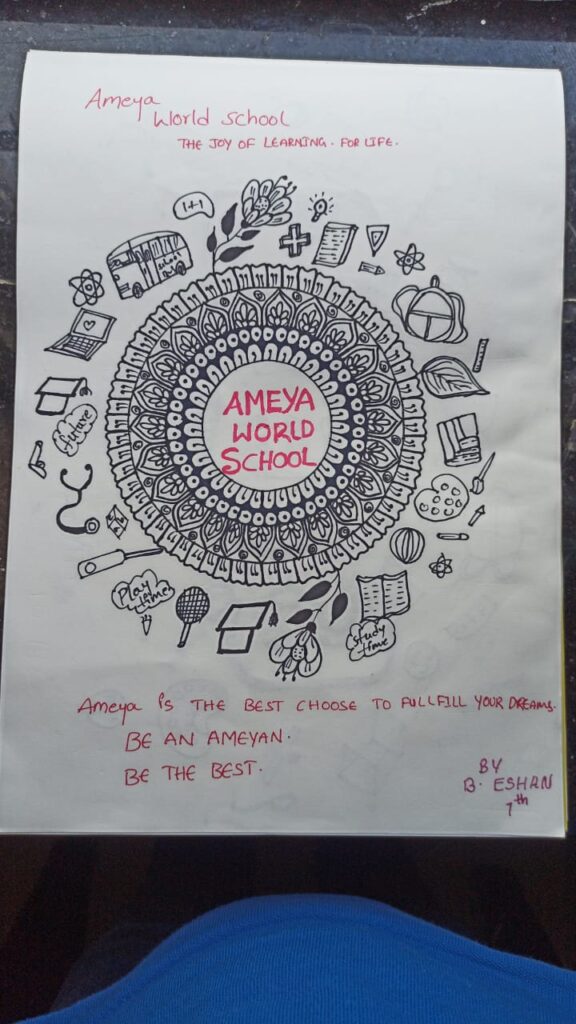 Ameya
World School
THE JOY OF LEARNING. FOR LIFE.
1+1
School
Bus
AMEYA
WORLD
SCHOOL
future
Play
time
Study
time
Ameya is THE BEST CHOOSE TO FULLFILL YOUR DREAMS.
BE AN AMEYAN.
BE THE BEST.
BY
B. ESHAN
7th